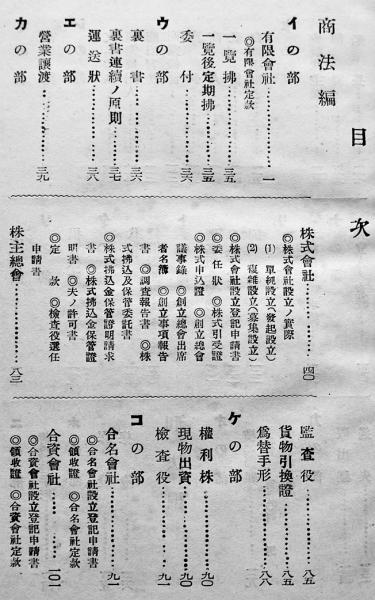 目次
商法編
イの部
有限會社………一
◎有限會社定款
一覽拂………三五
一覽後定期拂………三五
委付………三六
ウの部
裏書………三六
裏書連續ノ原則………三七
運送狀………三八
エの部
營業讓渡………三九
カの部
株式會社………四〇
◎株式會社設立ノ實際
(1) 單純設立(發起設立)
(2) 複雜設立(募集設立)
◎株式會社設立登記申請書
◎委任狀 ◎株式引受證
◎株式申込證 ◎創立總會
議事錄 ◎創立總會出席
者名簿 ◎創立事項報告
書 ◎調査報告書 ◎株
式拂込及保管委託書
◎株式拂込金保管證明請求
書 ◎株式拂込金保管證
明書 ◎夫ノ許可書
◎定款 ◎檢査役選任
申請書
株主總會………八三
監査役………八五
貨物引換證………八五
爲替手形………八八
ケの部
權利株………九〇
現物出資………九〇
檢査役………九一
コの部
合名會社………九一
◎合名會社設立登記申請書
◎領收證 ◎合名會社定款
合資會社………一〇一
◎合資會社設立登記申請書
◎領收證 ◎合資會社定款